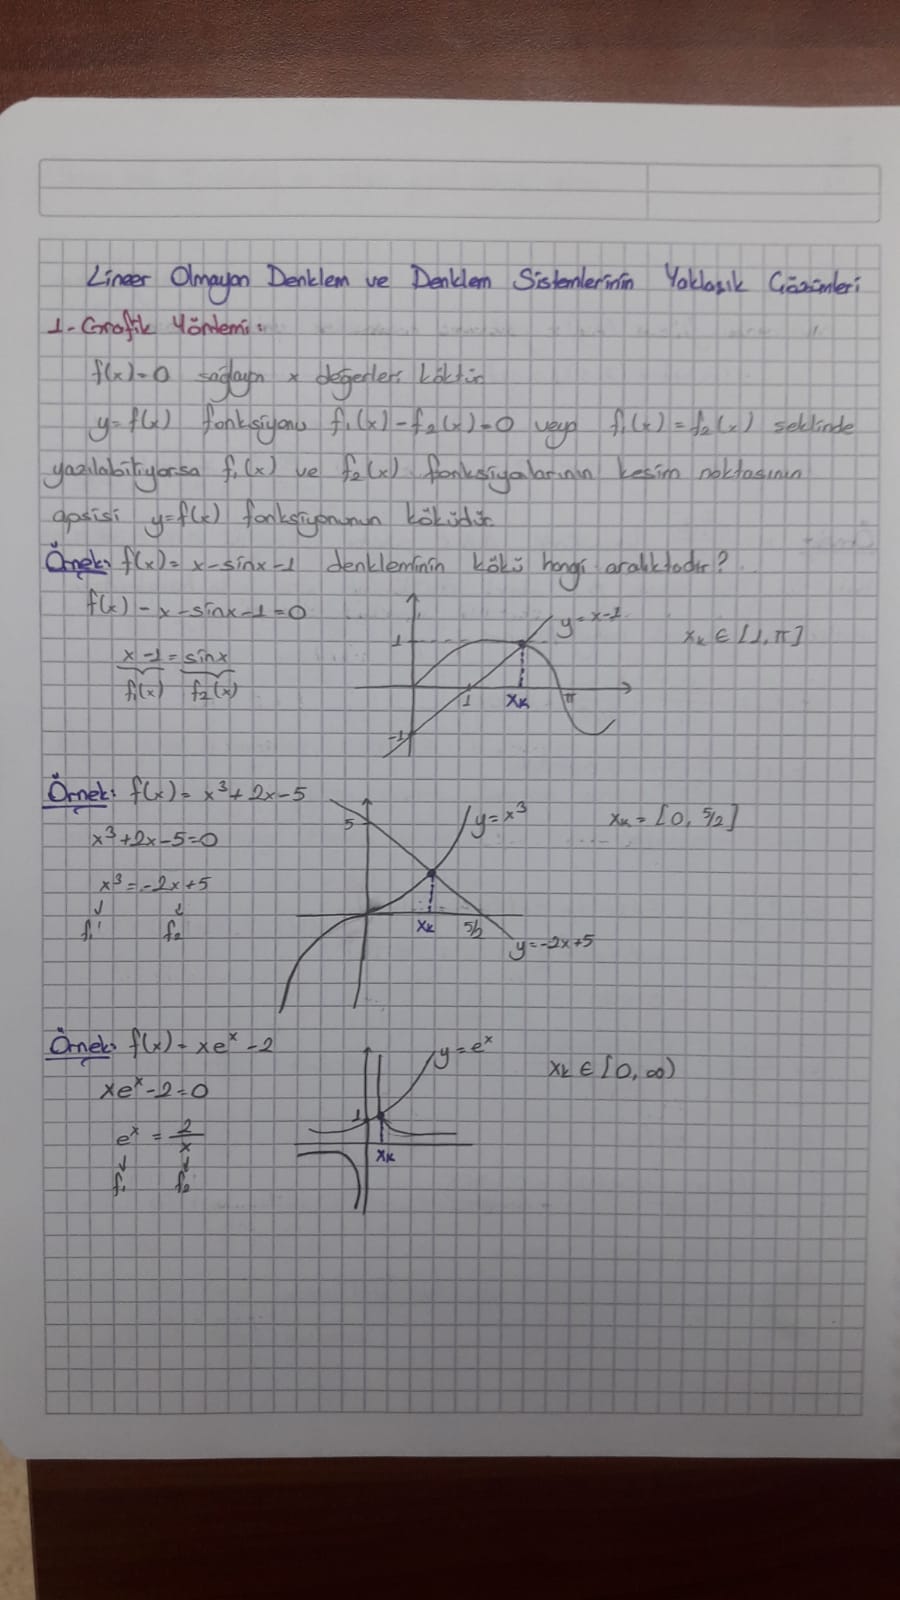 Lineer Olmayan Denklem ve Denklem Sistemlerinin Yaklaşık Çözümleri
1-Grafik Yöntemi:
f(x)=0 sağlayan x değerleri köktür.
y=f(x) fonksiyonu f₁(x)-f₂(x)=0 veya f₁(x)=f₂(x) seklinde
yazılabiliyorsa f₁(x) ve f₂(x) fonksiyalarının kesim noktasının
apsisi y=f(x) fonksiyonunun köküdür.
Örnek: f(x)= x-sinx-1 denkleminin kökü hangi aralıktadır?
f(x)-x-sinx-1=0
y=x-1
1
xₖ ∈ [1,π]
x-1=sinx
f₁(x) f₂(x)
1 xₖ π
-1
Örnek: f(x)= x³+2x-5
5 y=x³
xₖ = [0, 5/2]
x³+2x-5=0
x³=-2x+5
f₁ f₂
xₖ 5/2
y=-2x+5
Örnek: f(x)=xeˣ-2
y=eˣ
xₖ ∈ [0,∞)
xeˣ-2=0
eˣ = 2/x
1
xₖ
f₁ f₂